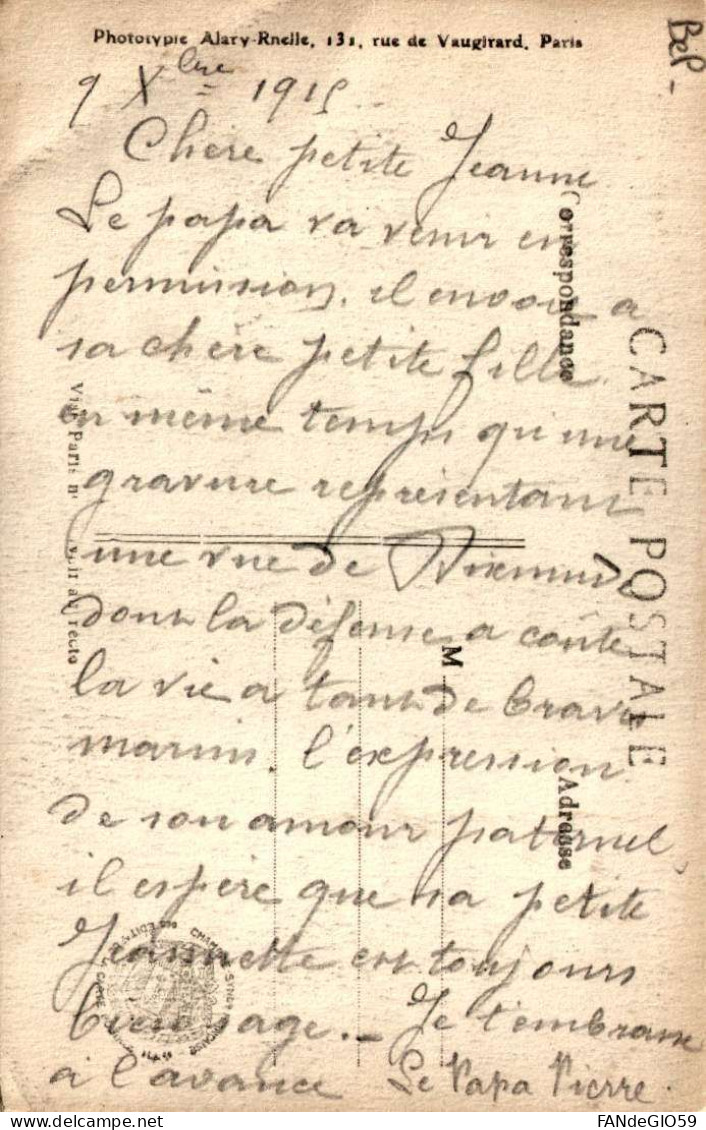 Phototypie Alary-Ruelle, 131, rue de Vaugirard, Paris
BeP -
9 Xbre 1915
Chère petite Jeanne
Le papa va venir en
permission. il envoie a
sa chère petite fille
en même temps qu'une
gravure représentant
une vue de Dixmude
dont la défense a couté
la vie a tant de brave
marin. l'expression
de son amour paternel,
il espère que sa petite
Jeannette est toujours
bien sage. _ Je t'embrasse
à l'avance Le Papa Pierre.
CARTE POSTALE
Correspondance
Adresse
M
Visé Paris n° voir au recto
FANdeGIO59